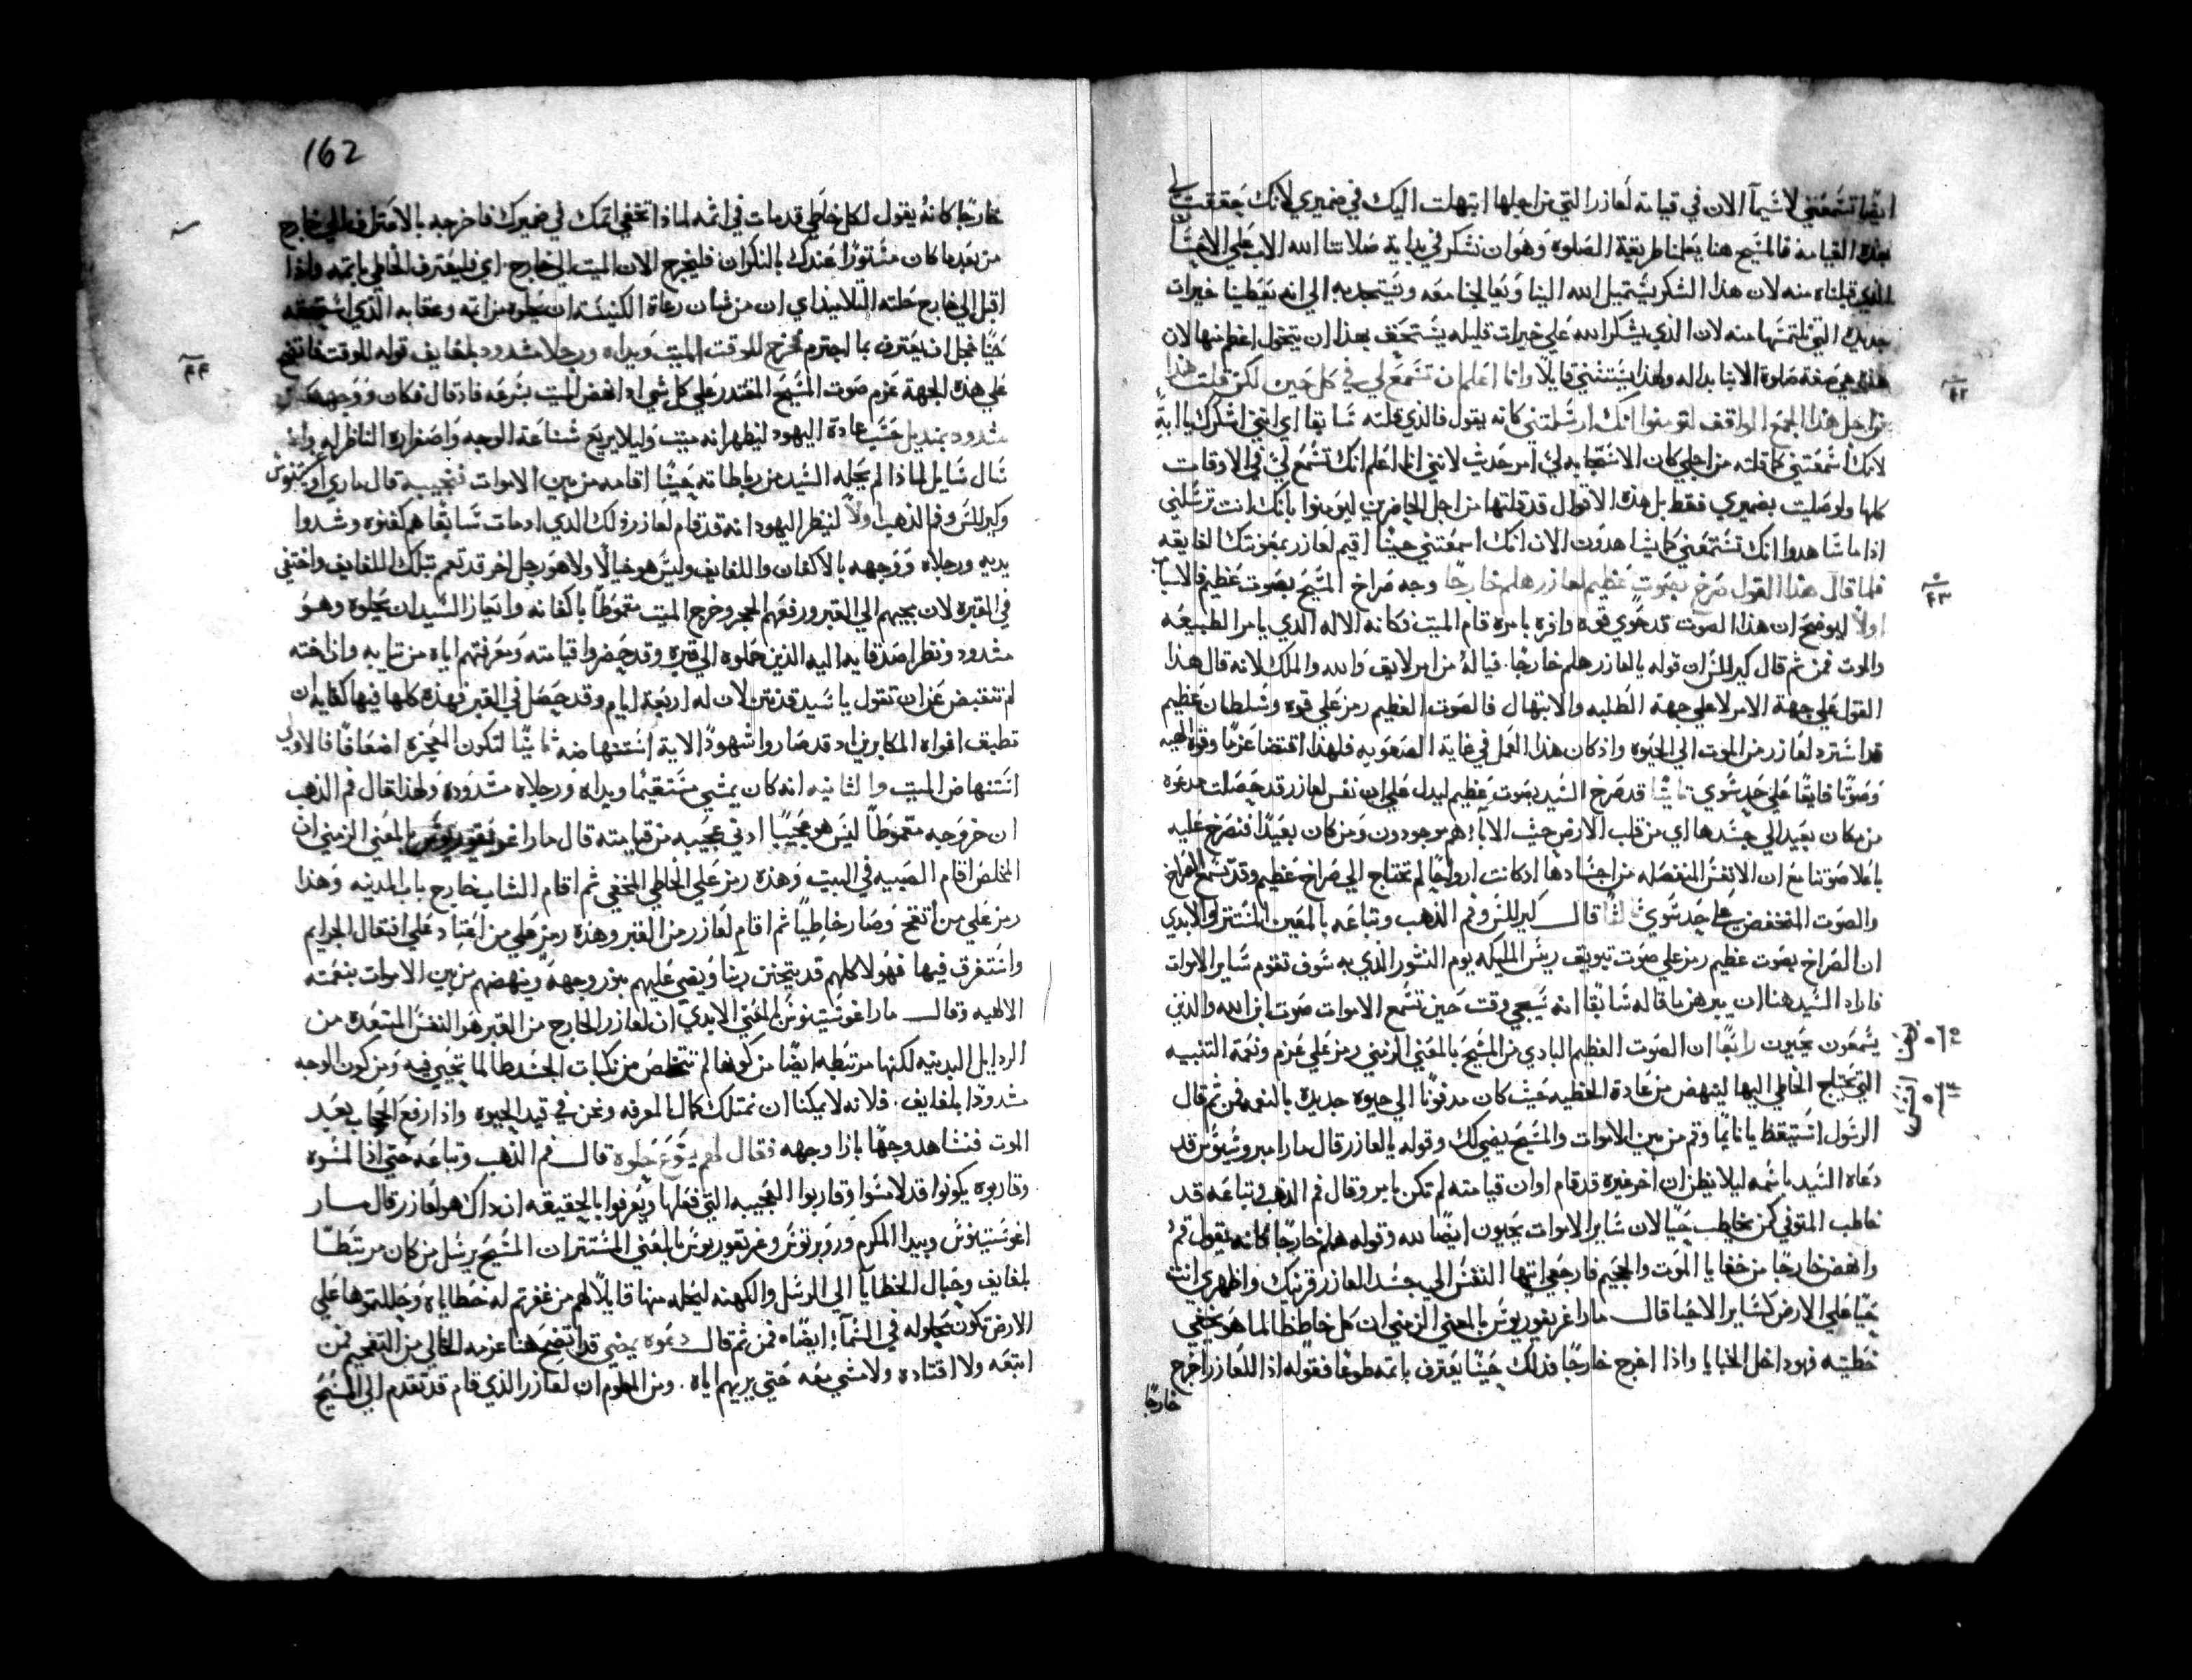 ايضًا تسمعني لاسيما الان في قيامة لعازر التي من اجلها ابتهلت اليك في ضميري لانك حققت لي
هذه القيامة فالمسيح هنا يعلمنا طريقة الصلوة وهو ان نشكر في بداية صلاتنا الله الاب علي الاحسان
الذي قبلناه منه لان هذا الشكر يستميل الله الينا ويعالجنا معه ويستجدبه الي انه يعطينا خيرات
جديده التي نلتمسها منه لان الذي يشكر الله علي خيرات قليله يستحق بعد ان يتخول اعظم منها لان
هذه هي صفة صلوة الابنا بداله ولهذا يستثني قايلًا وانا اعلم ان تسمع لي في كل حين لكن قلت هذا
من اجل هذا الجمع الواقف ليومنوا انك ارسلتني كانه يقول فالذي قلته سابقا اي انني اشكرك يا ابة
لانك اسمعتني كما قلته من اجلي كان الاستجابه لي امر حديث لانني انا اعلم انك تسمع لي في الاوقات
كلها ولو صليت بضميري فقط بل هذه الاقوال قد قلتها من اجل الحاضرين ليومنوا بانك انت ترسلني
اذا ما شاهدوا انك تستمعني كما يشاهدون الان انك اسمعتني حينما اقيم لعازر بمعونتك الفايقه
فلما قال هذا القول صرخ بصوت عظيم لعازر هلم خارجًا وجه صراخ المسيح بصوت عظيم فالاسباب
اولًا ليوضح ان هذا الصوت قد حوي قوه وافره بامره قام الميت فكانه الاله الذي يامر الطبيعه
والموت فمن ثم قال كيرللس ان قوله يالعازر هلم خارجًا. فياله من امر لايق والله والملك لانه قال هذا
القول علي جهة الامر لا علي جهة الطلبه والابتهال فالصوت العظيم رمز علي قوه وسلطان عظيم
قد استرد لعازر من الموت الي الحيوه واذ كان هذا العمل في غاية الصعوبه فلهذا اقتضا عزمًا وقوه الهيه
وصوتًا فايقًا علي حد سوي ثانيًا قد صرخ السيد بصوت عظيم ليدل علي ان نفس لعازر قد حصلت مدعوه
من مكان بعيد الي جسدها اي من قلب الارض حيث الابا هم موجودون ومن كان بعيدًا فنصرخ عليه
باعلا صوتنا مع ان الانفس المنفصله من اجسادها اذ كانت ارواحًا لم تحتاج الي صراخ عظيم وقد تسمع الصراخ
والصوت المنخفض علي حد سوي ثالثًا قال كيرللس وفم الذهب وتباعه بالمعين المستتر والابدي
ان الصراخ بصوت عظيم رمز علي صوت تبويق ريس المليكه يوم النشور الذي به سوف تقوم ساير الاموات
فاراد السيد هنا ان يبرهن ما قاله سابقًا انه سيجي وقت حين تسمع الاموات صوت ابن الله والذين
يسمعون يحيون رابعًا ان الصوت العظيم البادي من المسيح بالمعني الزمني رمز علي عزم ونعمة التنبيه
التي يحتاج الخاطي اليها لينهض من عادة الخطيه حيث كان مدفونًا الي حيوه جديده بالنعمه فمن ثم قال
الرسول استيقظ يا نايمًا وقم من بين الاموات والمسيح يضي لك وقوله يالعازر قال مار امبروسيوس قد
دعاه السيد باسمه ليلا يظن ان اخر غيره قد قام او ان قيامته لم تكن بامر وقال فم الذهب وتباعه قد
خاطب المتوفي كمن يخاطب حيًا لان ساير الاموات يحيون ايضًا لله وقوله هلم خارجًا كانه يقول قم
وانهض خارجًا من خفايا الموت والجحيم فارجعي ايتها النفس الي جسد العازر قرينك واظهري انت
حيًا علي الارض كساير الاحيا قال مار اغريغوريوس بالمعني الزمني ان كل خاطٍ طالما هو يخفي
خطيته فهو داخل الخبايا واذا اخرج خارجًا فذلك حينًا يعترف باثمه طوعًا فقوله اذا للعازر اخرج
خارجًا
٤٢
٤٣
162
خارجًا كانه يقول لكل خاطي قد مات في اثمه لماذا تخفي اثمك في ضميرك فاخرجه بالاعتراف الي خارج
من بعد ما كان مستورًا عندك بالنكران فليخرج الان الميت الي خارج. اي فليعترف الخاطي باثمه واذا
اقبل الي خارج حلته التلاميذ اي ان من شان رعاة الكنيسة ان يحلوه من اثمه وعقابه الذي استحقه
حيًا فحل ان يعترف بما اجترم فخرج للوقت الميت ويداه ورجلاه مشدود بلفايف قوله للوقت فاتضح
علي هذه الجهة عزم صوت المسيح المقتدر علي كل شي اذ انهض الميت بسرعه فاذ قال فكان ووجهه
مشدود بمنديل حسب عادة اليهود ليظهر انه ميت وليلا يريع شناعة الوجه واصفراره الناظر له وان
سال سايل لماذا لم يحله السيد من رباطاته حينما اقامه من بين الاموات فنجيبه قال ماري اوكتنيوس
وكيرللس وفم الذهب اولًا لينظر اليهود انه قد قام لعازر ذلك الذي اذ مات سابقا هم كفنوه وشدوا
يديه ورجلاه ووجهه بالاكفان واللفايف وليس هو خيالًا ولا هو رجل اخر قد تعمم بتلك اللفايف واختفي
في القبره لان بمجيهم الي القبر ورفعهم الحجر وخرج الميت متموطًا باكفانه وايعاز السيد ان يحلوه وهو
مشدود ونظر اصدقايه اليه الذين حملوه الي قبره وقد حضروا قيامته ومعرفتهم اياه من ثيابه واذ اخته
لم تنغبض عن ان تقول يا سيد قد نتن لان له اربعة ايام وقد حصل في القبر فهذه كلها فيها كفايه ان
تطبق افواه المكابرين اذ قد صاروا شهودًا لاية استنهاضه ثانيًا لتكون المعجزه اضعافًا فالاولي
استنهاض الميت والثانيه انه كان يمشي مستقيمًا ويداه ورجلاه مشدوده ولهذا قال فم الذهب
ان خروجه متموطًا ليس هو عجيبًا ادني عجيبه من قيامته قال مار اغريغوريوس بالمعني الزمني ان
المخلص اقام الصبيه في البيت وهذه رمز علي الخاطي المخفي ثم اقام الشاب خارج باب المدينه وهذا
رمز علي من اتضح وصار خاطيًا ثم اقام لعازر من القبر وهذه رمز علي من اعتاد علي افتعال الجرايم
واستغرق فيها فهولا كلهم قد يتحنن ربنا ويضي عليهم بنور وجهه وينهضهم من بين الاموات بنعمته
الالهيه وقال مار اغوستينوس بالمعني الابدي ان لعازر الخارج من القبر هو النفس المبتعده من
الرذايل البدنيه لكنها مرتبطه ايضًا من كونها لم تتخلص من نكبات الجسد طالما تحيي فيه ومن كون الوجه
مشدودًا بلفايف. فلانه لا يمكننا ان نمتلك كمال المعرفه ونحن في قيد الحيوه واذا رفع الحجاب بعد
الموت فنشاهد وجهًا بازا وجهه فقال لهم يسوع حلوه قال فم الذهب وتباعه حتي اذا لمسوه
وقاربوه يكونوا قد لامسوا وقاربوا العجيبه التي فعلها ويعرفوا بالحقيقه ان ذاك هو لعازر قال مار
اغوستينوس وبيدا المكرم وروبرتوس وغريغوريوس بالمعني المستتر ان المسيح يرسل من كان مرتبطًا
بلفايف وحبال الخطايا الي الرسل والكهنه ليحله منها قايلًا لهم من غفرتم له خطاياه وحللتموها علي
الارض تكون محلوله في السما ايضًا فمن ثم قال دعوه يمضي قد اتضح هنا عزمه الخالي من التفخيم فمن
اتبعه ولا اقتاده ولا مشي معه حتي يريهم اياه. ومن المعلوم ان لعازر الذي قام قد تقدم الي المسيح
٤٤